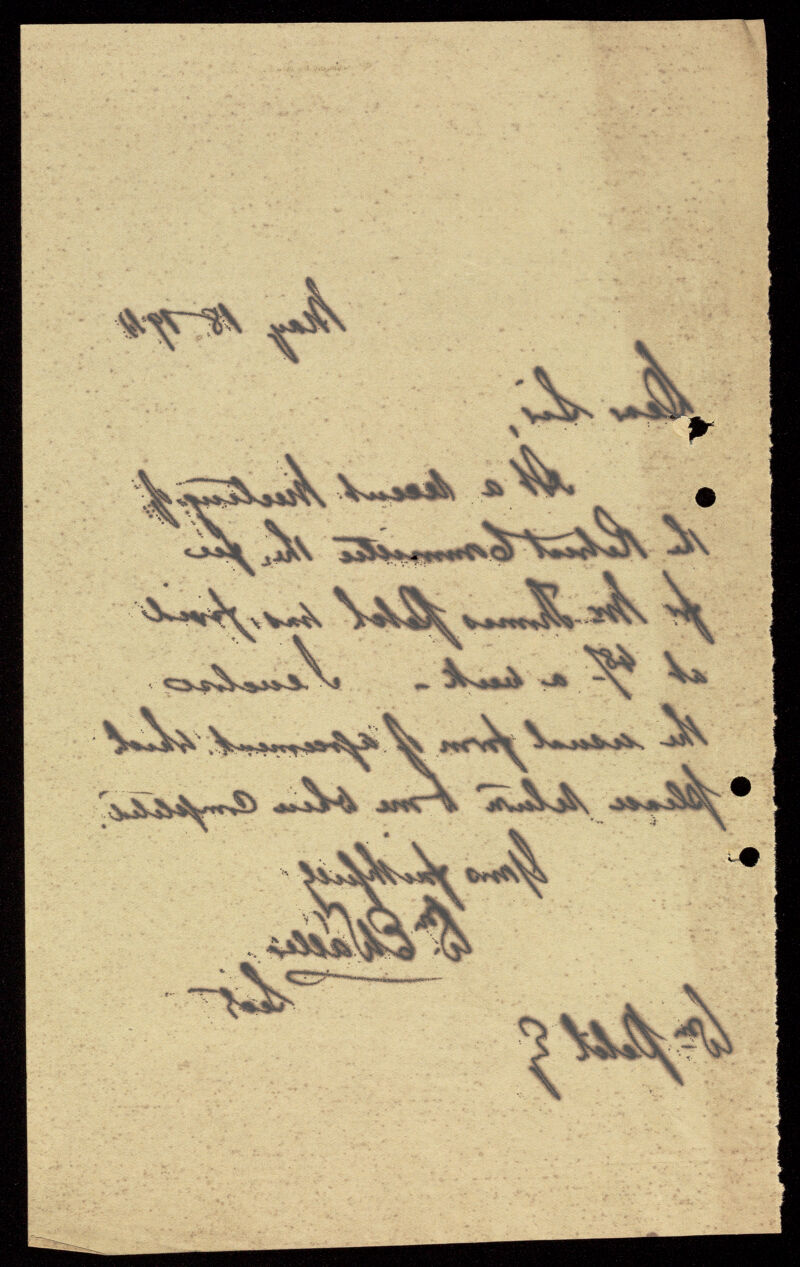 May 18 1911
Dear Sir,
At a recent meeting of
the Retreat Committee the fee
for Mr Thomas was fixed
at 48/- a week - I enclose
the usual form of agreement which
please return to me when completed.
Yours faithfully
Wm. E Waller
Secy
Wm Esq